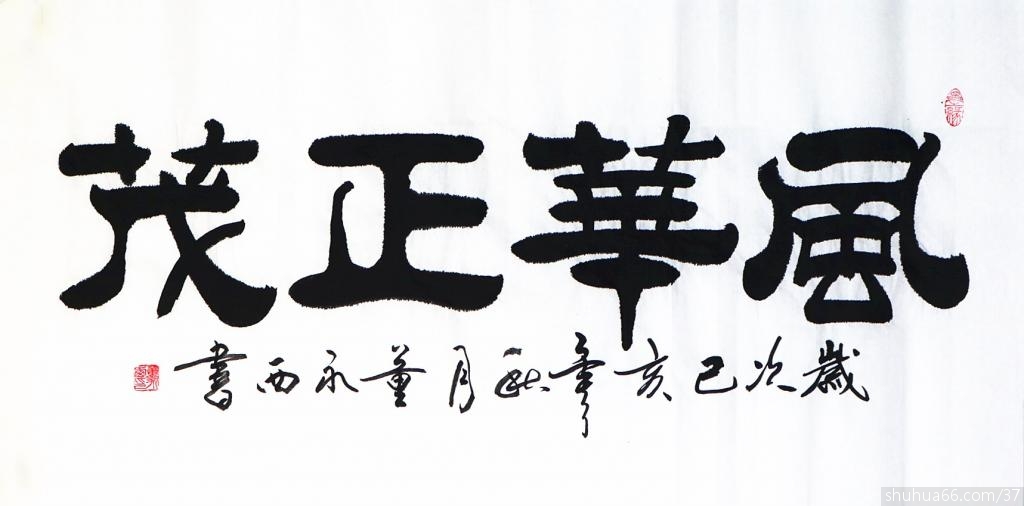 風華正茂
歲次己亥年秋月董永西書
shuhua66.com/37